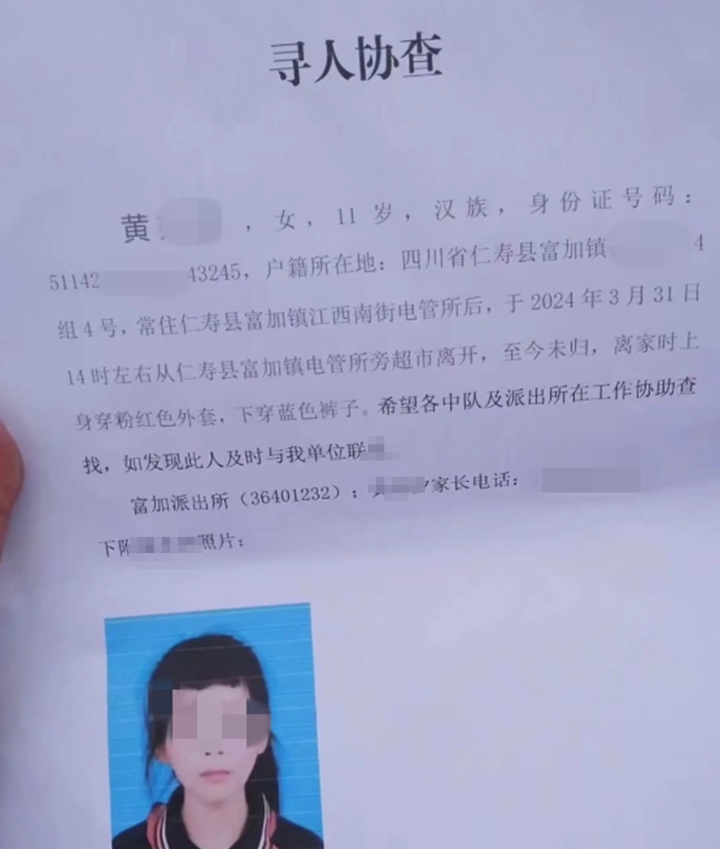 寻人协查
黄 ，女，11岁，汉族，身份证号码：
51142 43245，户籍所在地：四川省仁寿县富加镇 4
组4号，常住仁寿县富加镇江西南街电管所后，于2024年3月31日
14时左右从仁寿县富加镇电管所旁超市离开，至今未归，离家时上
身穿粉红色外套，下穿蓝色裤子。希望各中队及派出所在工作协助查
找，如发现此人及时与我单位联
富加派出所（36401232）； 家长电话：
下附 照片：